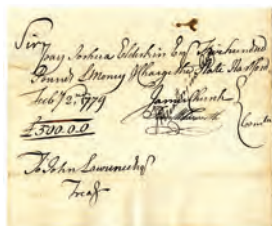 Sir
Pay Joshua Elderkin Esqr Five hundred
Pounds L Money & Charge the State Hartford
Feby 2d 1779
James Church
£500.0.0
Comtee
To John Lawrence Esqr
Treasr